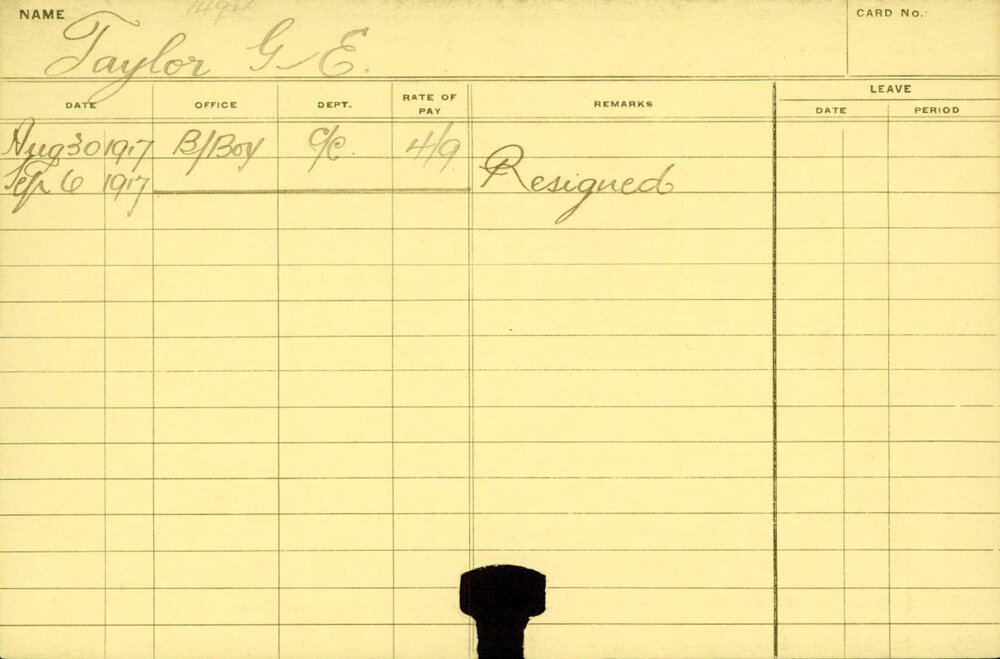 NAME CARD No.
Taylor G E.
DATE OFFICE DEPT. RATE OF PAY REMARKS LEAVE
DATE PERIOD
Aug 30 1917 B/Boy C/C. 4/9
Sep 6 1917 Resigned